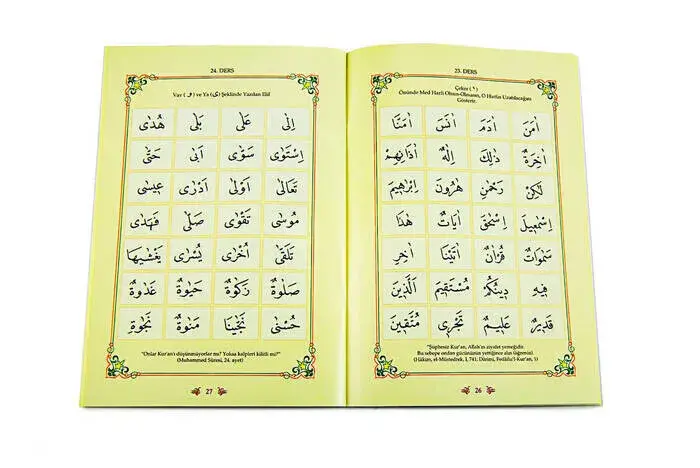 23. DERS
Önünde Med Harfi Olsun-Olmasın, O Harfin Uzatılacağını
Gösterir.
اٰمَنَ اٰدَمَ اٰنَسَ اٰمَنَّا
اٰخِرَةٌ ذٰلِكَ اِلٰهٌ اٰذَانِهِمْ
لٰكِنْ رَحْمٰنِ هٰرُونَ اِبْرٰهِيمَ
اِسْمٰعِيلَ اِسْحٰقَ اٰيَاتٌ هٰذَا
سَمٰوَاتٌ قُرْاٰنٌ اٰتَيْنَا اٰخِرِ
ف۪يهِ د۪ينُكُمْ مُسْتَق۪يمَ الَّذ۪ينَ
قَد۪يرٌ عَل۪يمٌ تَجْر۪ي مُتَّق۪ينَ
"Şüphesiz Kur'an, Allah'ın ziyafet yemeğidir.
Bu sebepe ondan gücünüzün yettiğince alın (öğrenin).
(Hâkim, el-Müstedrek, I, 741; Dârimî, Fedâilu'l-Kur'an, 1)
26
24. DERS
Vav ( و ) ve Ya ( ى ) Şeklinde Yazılan Elif
اِلٰى عَلٰى بَلٰى هُدٰى
اِسْتَوٰى سَوّٰى اَبٰى حَتّٰى
تَعَالٰى اَوْلٰى اَدْرٰى ع۪يسٰى
مُوسٰى تَقْوٰى صَلّٰى فَهَدٰى
تَلَقّٰى اُخْرٰى يُسْرٰى يَغْشٰيهَا
صَلٰوةٌ زَكٰوةٌ حَيٰوةٌ غَدٰوةٌ
حُسْنٰى نَجّٰينَا مَنٰوةٌ نَجٰوةٌ
"Onlar Kur'an'ı düşünmüyorlar mı? Yoksa kalpleri kilitli mi?"
(Muhammed Sûresi, 24. ayet)
27